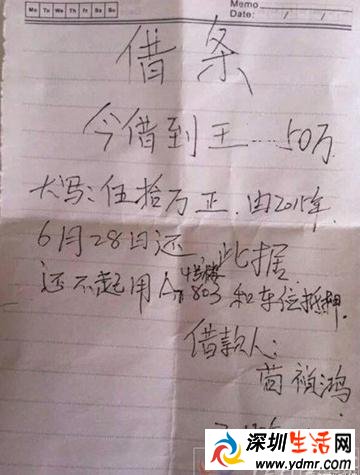 Memo
Mo Tu We Th Fr Sa Su
Date: / /
借条
今借到王 50万
大写:伍拾万正.由2015年
6月28日还 此据
还不起用 803 和车位抵押.
借款人:
深圳生活网
www.ydmr.com